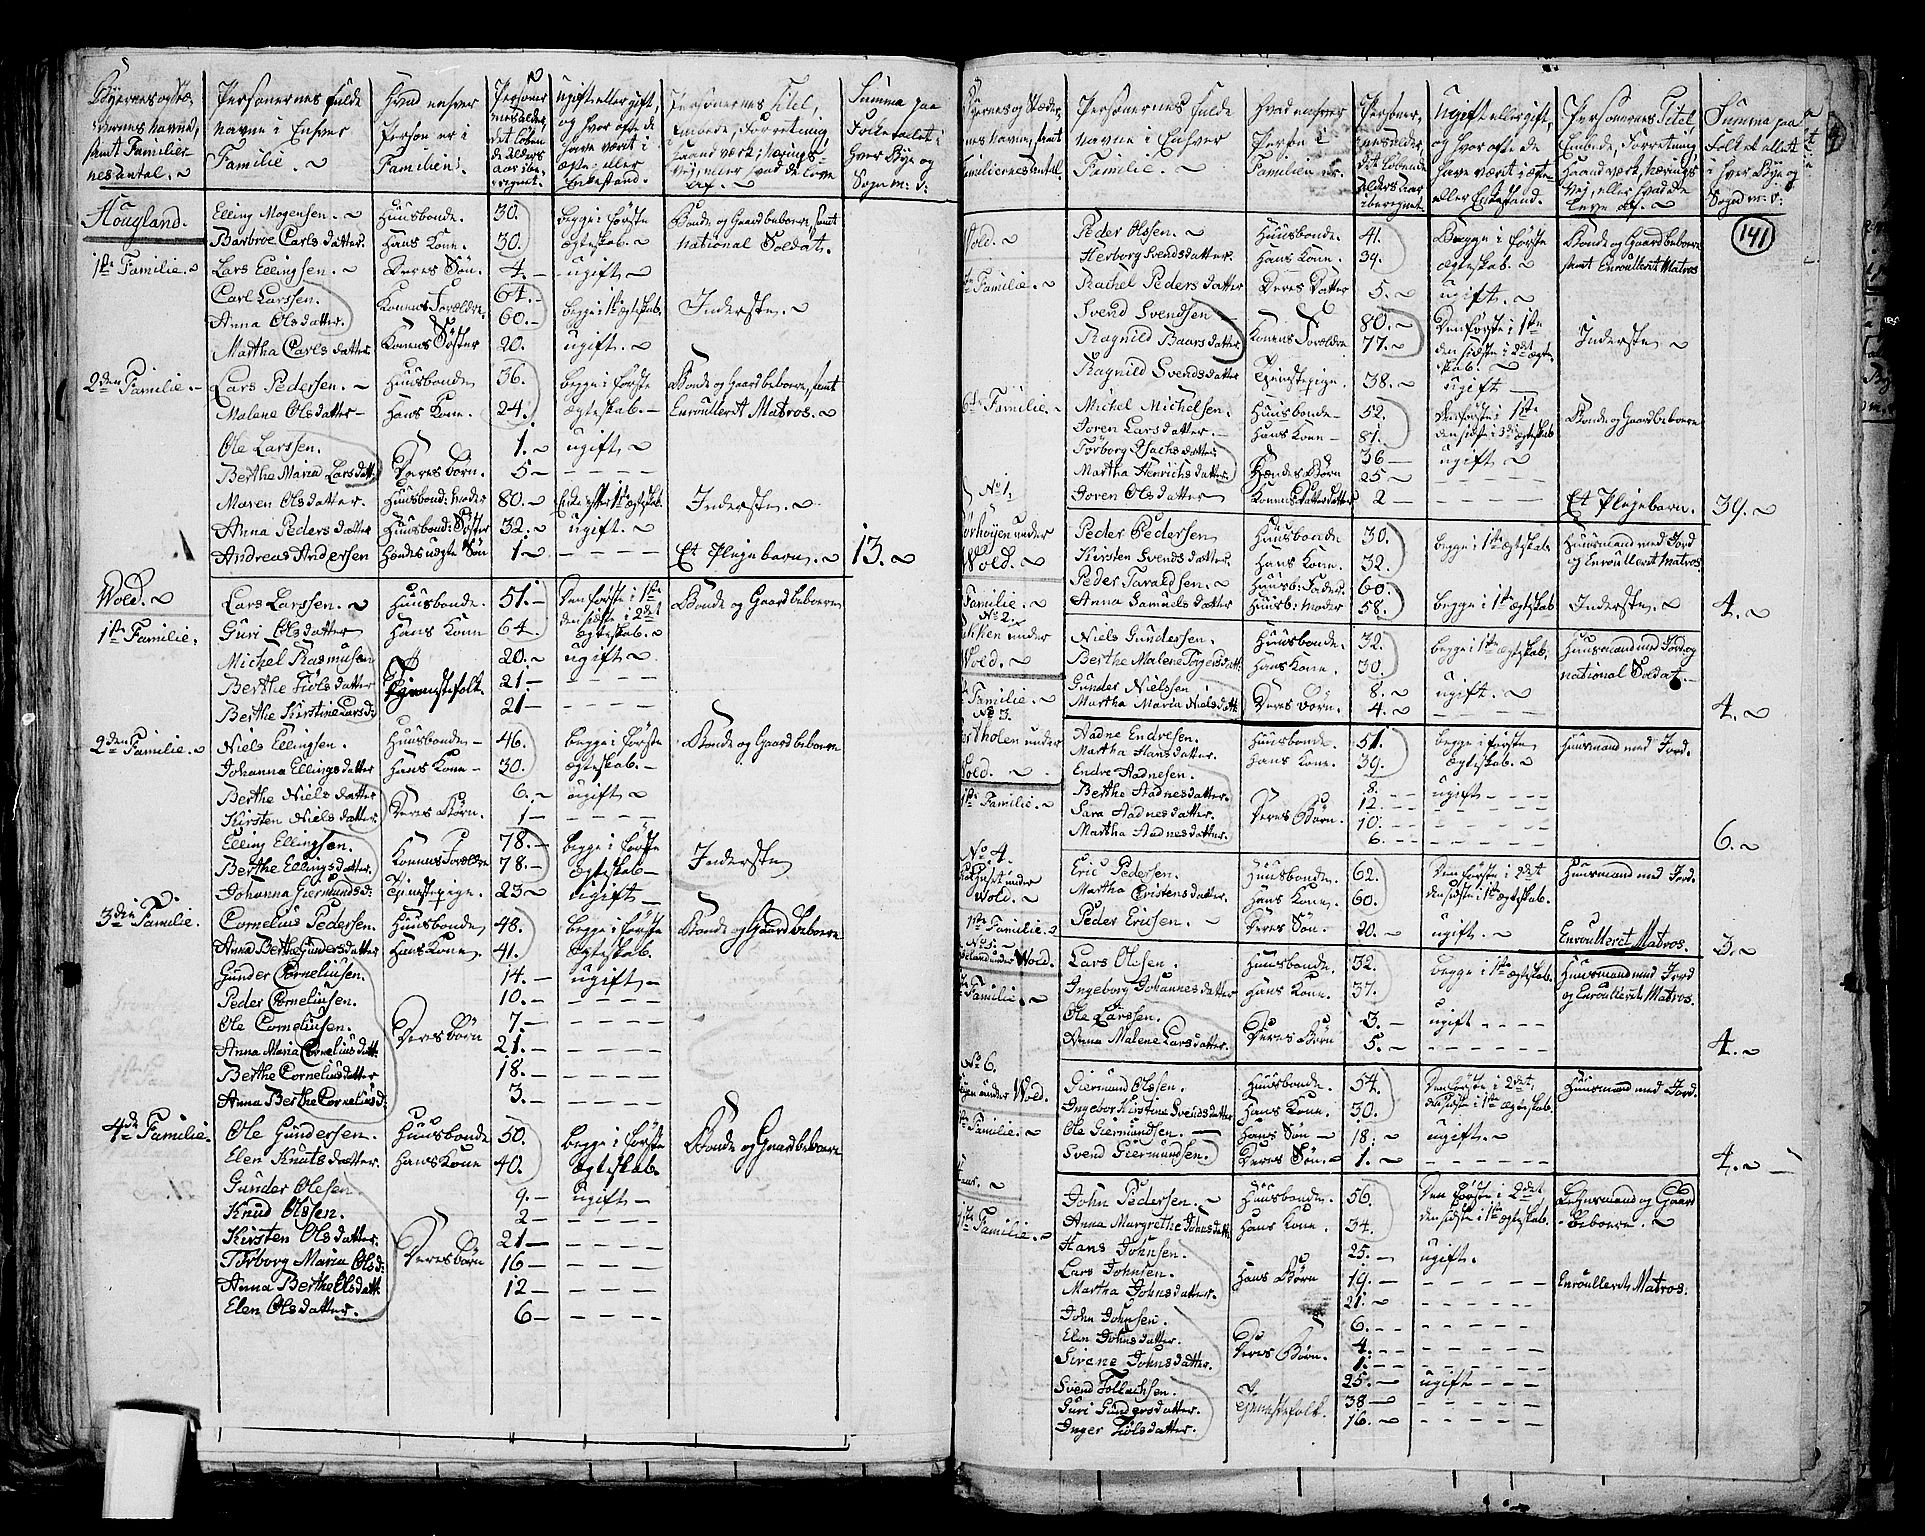 Byernes og Stæ-
dernes Navne,
samt Familier-
nes antal.
Personernes fulde
Navne i Enhver
Familie.
Hvad enhver
Person er i
Familien.
Ugift eller gift,
og hvor ofte de
have været i
Ægte- eller
Enkestand.
Personernes Titel,
Embede, Forretning,
Haandværk, Nærings-
vej, eller hvad de leve
af.
Summa paa
Folketallet i
hver Bye og
Sogn m: v:
Hougland.
Elling Mogensen. Huusbonde. 30. begge i første Bonde og Gaardbeboere, samt
Barbroe Carls datter. Hans Kone. 30. Ægteskab. National Soldat.
1ste Familie. Lars Ellingsen. Deres Søn. 4. ugift.
Carl Larssen. Konens Forældre. 64. begge i 1ste Ægteskab. Inderster.
Anna Ols datter. 60.
Martha Carls datter Konens Søster 20. ugift.
2den Familie. Lars Pedersen. Huusbonde 36. begge i første Bonde og Gaardbeboere, samt
Malene Olsdatter Hans Kone. 24. Ægteskab. Enroulleret Matros.
Ole Larssen. Deres Børn. 1. ugift
Berthe Maria Larsdatt: 5
Maren Olsdatter. Huusbond: Moder 80. Enke efter 1ste Ægteskab. Inderste.
Anna Peders datter Huusbond: Søster 32. ugift.
Andreas Andersen Hendes uægte Søn 1. Et Plejebarn. 13.
Wold. Lars Larssen. Huusbonde. 51. Den første i 1ste Bonde og Gaardbeboere
1ste Familie. Guri Olsdatter Hans Kone 64. den sidste i 2det Ægteskab.
Michel Rasmusen Tjenestefolk. 20. ugift
Berthe Fiolsdatter 21
Berthe Kirstine Larsd: 21
2den Familie. Niels Ellingsen. Huusbonde 46. begge i første Bonde og Gaardbeboere
Johanna Ellings datter Hans Kone 30. Ægteskab.
Berthe Niels datter Deres Børn. 6. ugift
Kirsten Niels datter. 1
Elling Ellingsen. Konens Forældre 78. begge i første Inderster
Berthe Ellingsdatter. 78. Ægteskab
Johanna Giermunds d: Tjenestepige. 23 ugift
3die Familie. Cornelius Pedersen. Huusbonde 48. begge i første Bonde og Gaardbeboere
Anna Berthe Gundersdatter Hans Kone. 41. Ægteskab.
Gunder Corneliusen. Deres Børn 14. ugift
Peder Corneliusen. 10.
Ole Corneliusen. 7.
Anna Maria Cornelius datt: 21.
Berthe Corneliusdatter 18.
Anna Berthe Cornelius d: 3.
4de Familie. Ole Gundersen. Huusbonde 50. begge i første Bonde og Gaardbeboere
Elen Knuts datter. Hans Kone 40. Ægteskab.
Gunder Olesen Deres Børn 9. ugift
Knud Olssen. 2
Kirsten Ols datter. 21
Törborg Maria Olsd: 16
Anna Berthe Olsdatt: 12
Elen Olsdatter. 6
Personernes fulde
Navne i Enhver
Familie.
Hvad enhver
Person i
Familien er.
Ugift eller gift,
og hvor ofte de
have været i Ægte
eller Enkestand.
Personernes Titel
Embede, Forretning,
Haandværk, Nærings
Vej, eller hvad de
leve af.
Summa paa
Folketallet
i hver Bye og
Sogn m: v:
141
Wold. Peder Olssen. Huusbonde. 41. Begge i første Bonde og Gaardbeboere
Herborg Svendsdatter. Hans Kone. 34. Ægteskab. samt Enroulleret Matros
Familie. Rachel Peders datter Deres Datter 5. ugift.
Svend Svendsen Konens Forældre 80. Den første i 1ste Inderster
Ragnild Baars datter 77. den sidste i 2det Ægteskab.
Ragnild Svends datter Tjenestepige. 38. ugift
6te Familie. Michel Michelsen. Huusbonde 52. Den første i 1ste Bonde og Gaardbeboere
Joren Larsdatter. Hans Kone 81. den sidste i 3die Ægteskab
Törborg Isachs datter Hendes Børn 36 ugift
Martha Henrichs datter 25
No 1. Joren Olsdatter Konens Datterdatter 2 Et Plejebarn. 39.
under Wold. Peder Pedersen Huusbonde 30. begge i 1ste Ægteskab Huusmand med Jord
Kirsten Svends datter Hans Kone. 32. og Enroulleret Matros
Peder Taraldsen. Huusb: Fader 60.
Familie. Anna Samuels datter Huusb: Moder 58. begge i 1ste Ægteskab Inderster 4.
No 2. under Wold. Niels Gundersen. Huusbonde. 32. begge i 1ste Ægteskab. Huusmand med Jord og
Berthe Malene Törgersdatt: Hans Kone. 30. National Soldat.
Familie Gunder Nielssen Deres Børn. 8. ugift.
Martha Maria Nielsdatt: 4. 4.
No 3. under Wold. Aadne Endresen. Huusbonde. 51. begge i første Huusmand med Jord.
Martha Hansdatter. Hans Kone. 39. Ægteskab.
Endre Aadnesen. Deres Børn. 8.
1ste Familie. Berthe Aadnesdatter. 12. ugift
Sara Aadnesdatter. 10.
Martha Aadnesdatter. 6. 6.
No 4. under Wold. Eric Pedersen. Huusbonde. 62. Den første i 2det Huusmand med Jord.
Martha Cristensdatter. Hans Kone. 60. den sidste i 1ste Ægteskab.
1ste Familie. Peder Ericsen. Deres Søn. 20. ugift. Enroulleret Matros. 3.
No 5. under Wold. Lars Olesen. Huusbonde. 32. begge i 1ste Ægteskab. Huusmand med Jord
Familie. Ingeborg Johannes datter Hans Kone. 37. og Enroulleret Matros.
Ole Larssen. Deres Børn 3. ugift
Anna Malene Larsdatter. 5. 4.
No 6. under Wold. Giermund Olssen. Huusbonde. 54. Den første i 2det, Huusmand med Jord.
Ingebor Kirstine Svends datter Hans Kone. 30. den sidste i 1ste Ægteskab.
Familie. Ole Giermundsen. Hans Søn 18. ugift.
Svend Giermundsen. Deres Søn. 1. 4.
John Pedersen. Huusbonde. 56. Den første i 2det Lehnsmand og Gaard
1ste Familie. Anna Margrethe Johnsdatt: Hans Kone. 34. den sidste i 1ste Ægteskab. Beboere.
Hans Johnsen. Hans Børn 25. ugift.
Lars Johnsen. 19. Enroulleret Matros.
Martha Johnsdatter. 21.
John Johnsen. Deres Børn. 6.
Elen Johnsdatter. 4.
Sirene Johnsdatter. 1.
Svend Tollachsen. Tjenestefolk. 25. ugift
Guri Gundersdatter. 38
Inger Fiolsdatter. 16.